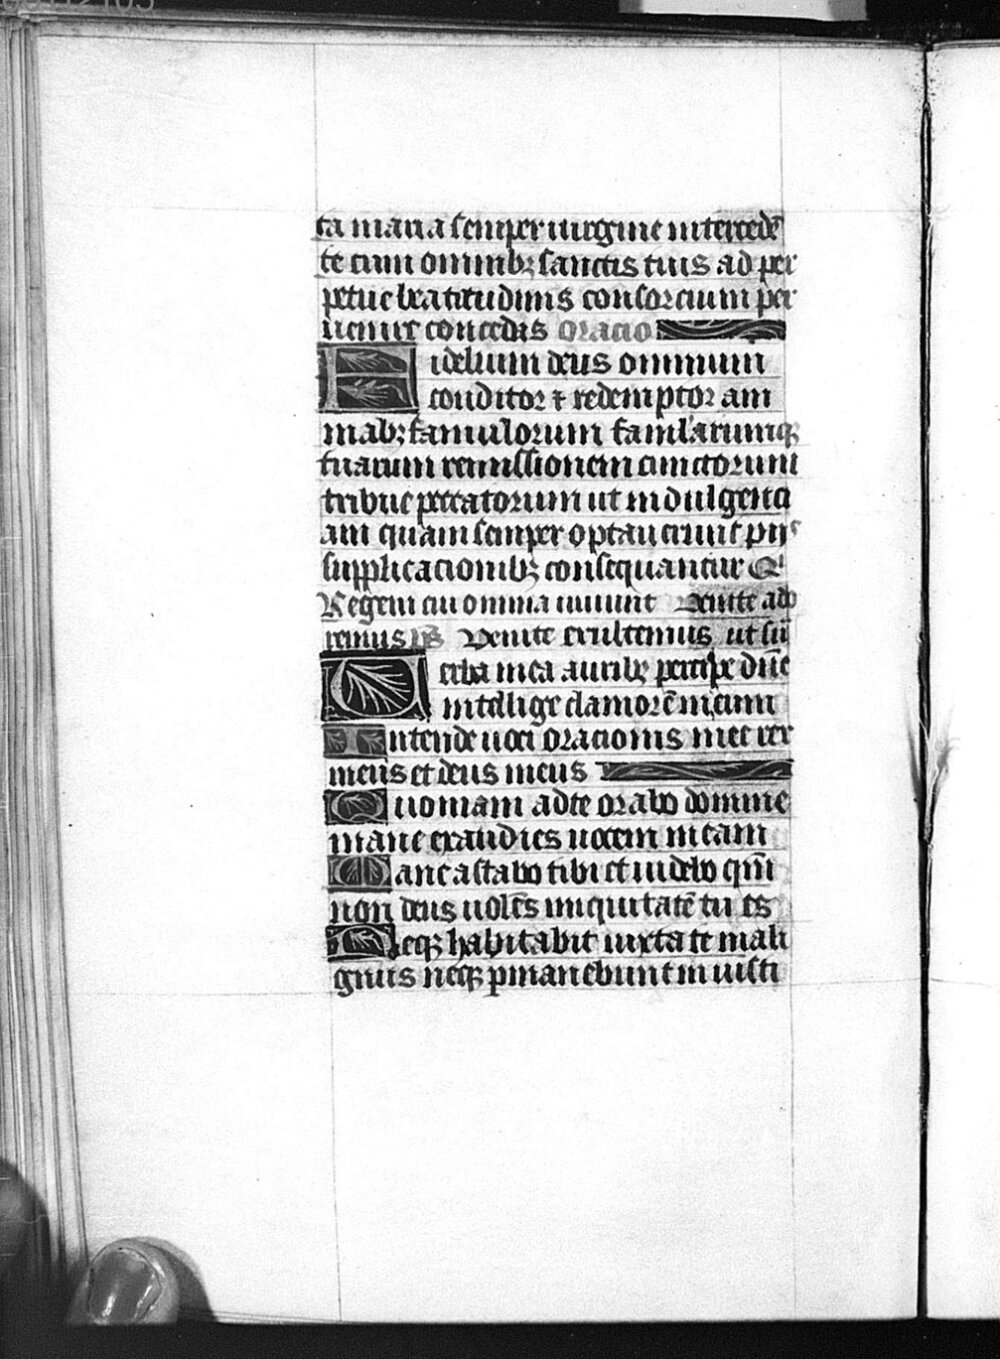 ta maria semper uirgine intercedē
te cum omnibꝫ sanctis tuis ad per
petue beatitudinis consorcium per
uenire concedas Oracio
Fidelium deus omnium
conditor ⁊ redemptor ani
mabꝫ famulorum famularumqꝫ
tuarum remissionem cunctorum
tribue peccatorum ut indulgenci
am quam semper optauerunt piis
supplicacionibꝫ consequantur Q
Regem cui omnia uiuunt Venite ado
remus ps Venite exultemus ut sū
Uerba mea auribꝫ percipe dn̄e
intellige clamorē meum
Intende uoci oracionis mee rex
meus et deus meus
Quoniam ad te orabo domine
mane exaudies uocem meam
Mane astabo tibi et uidebo qm̄
non deus uolēs iniquitatē tu es
Neqꝫ habitabit iuxta te mali
gnus neqꝫ ꝑmanebunt iniusti